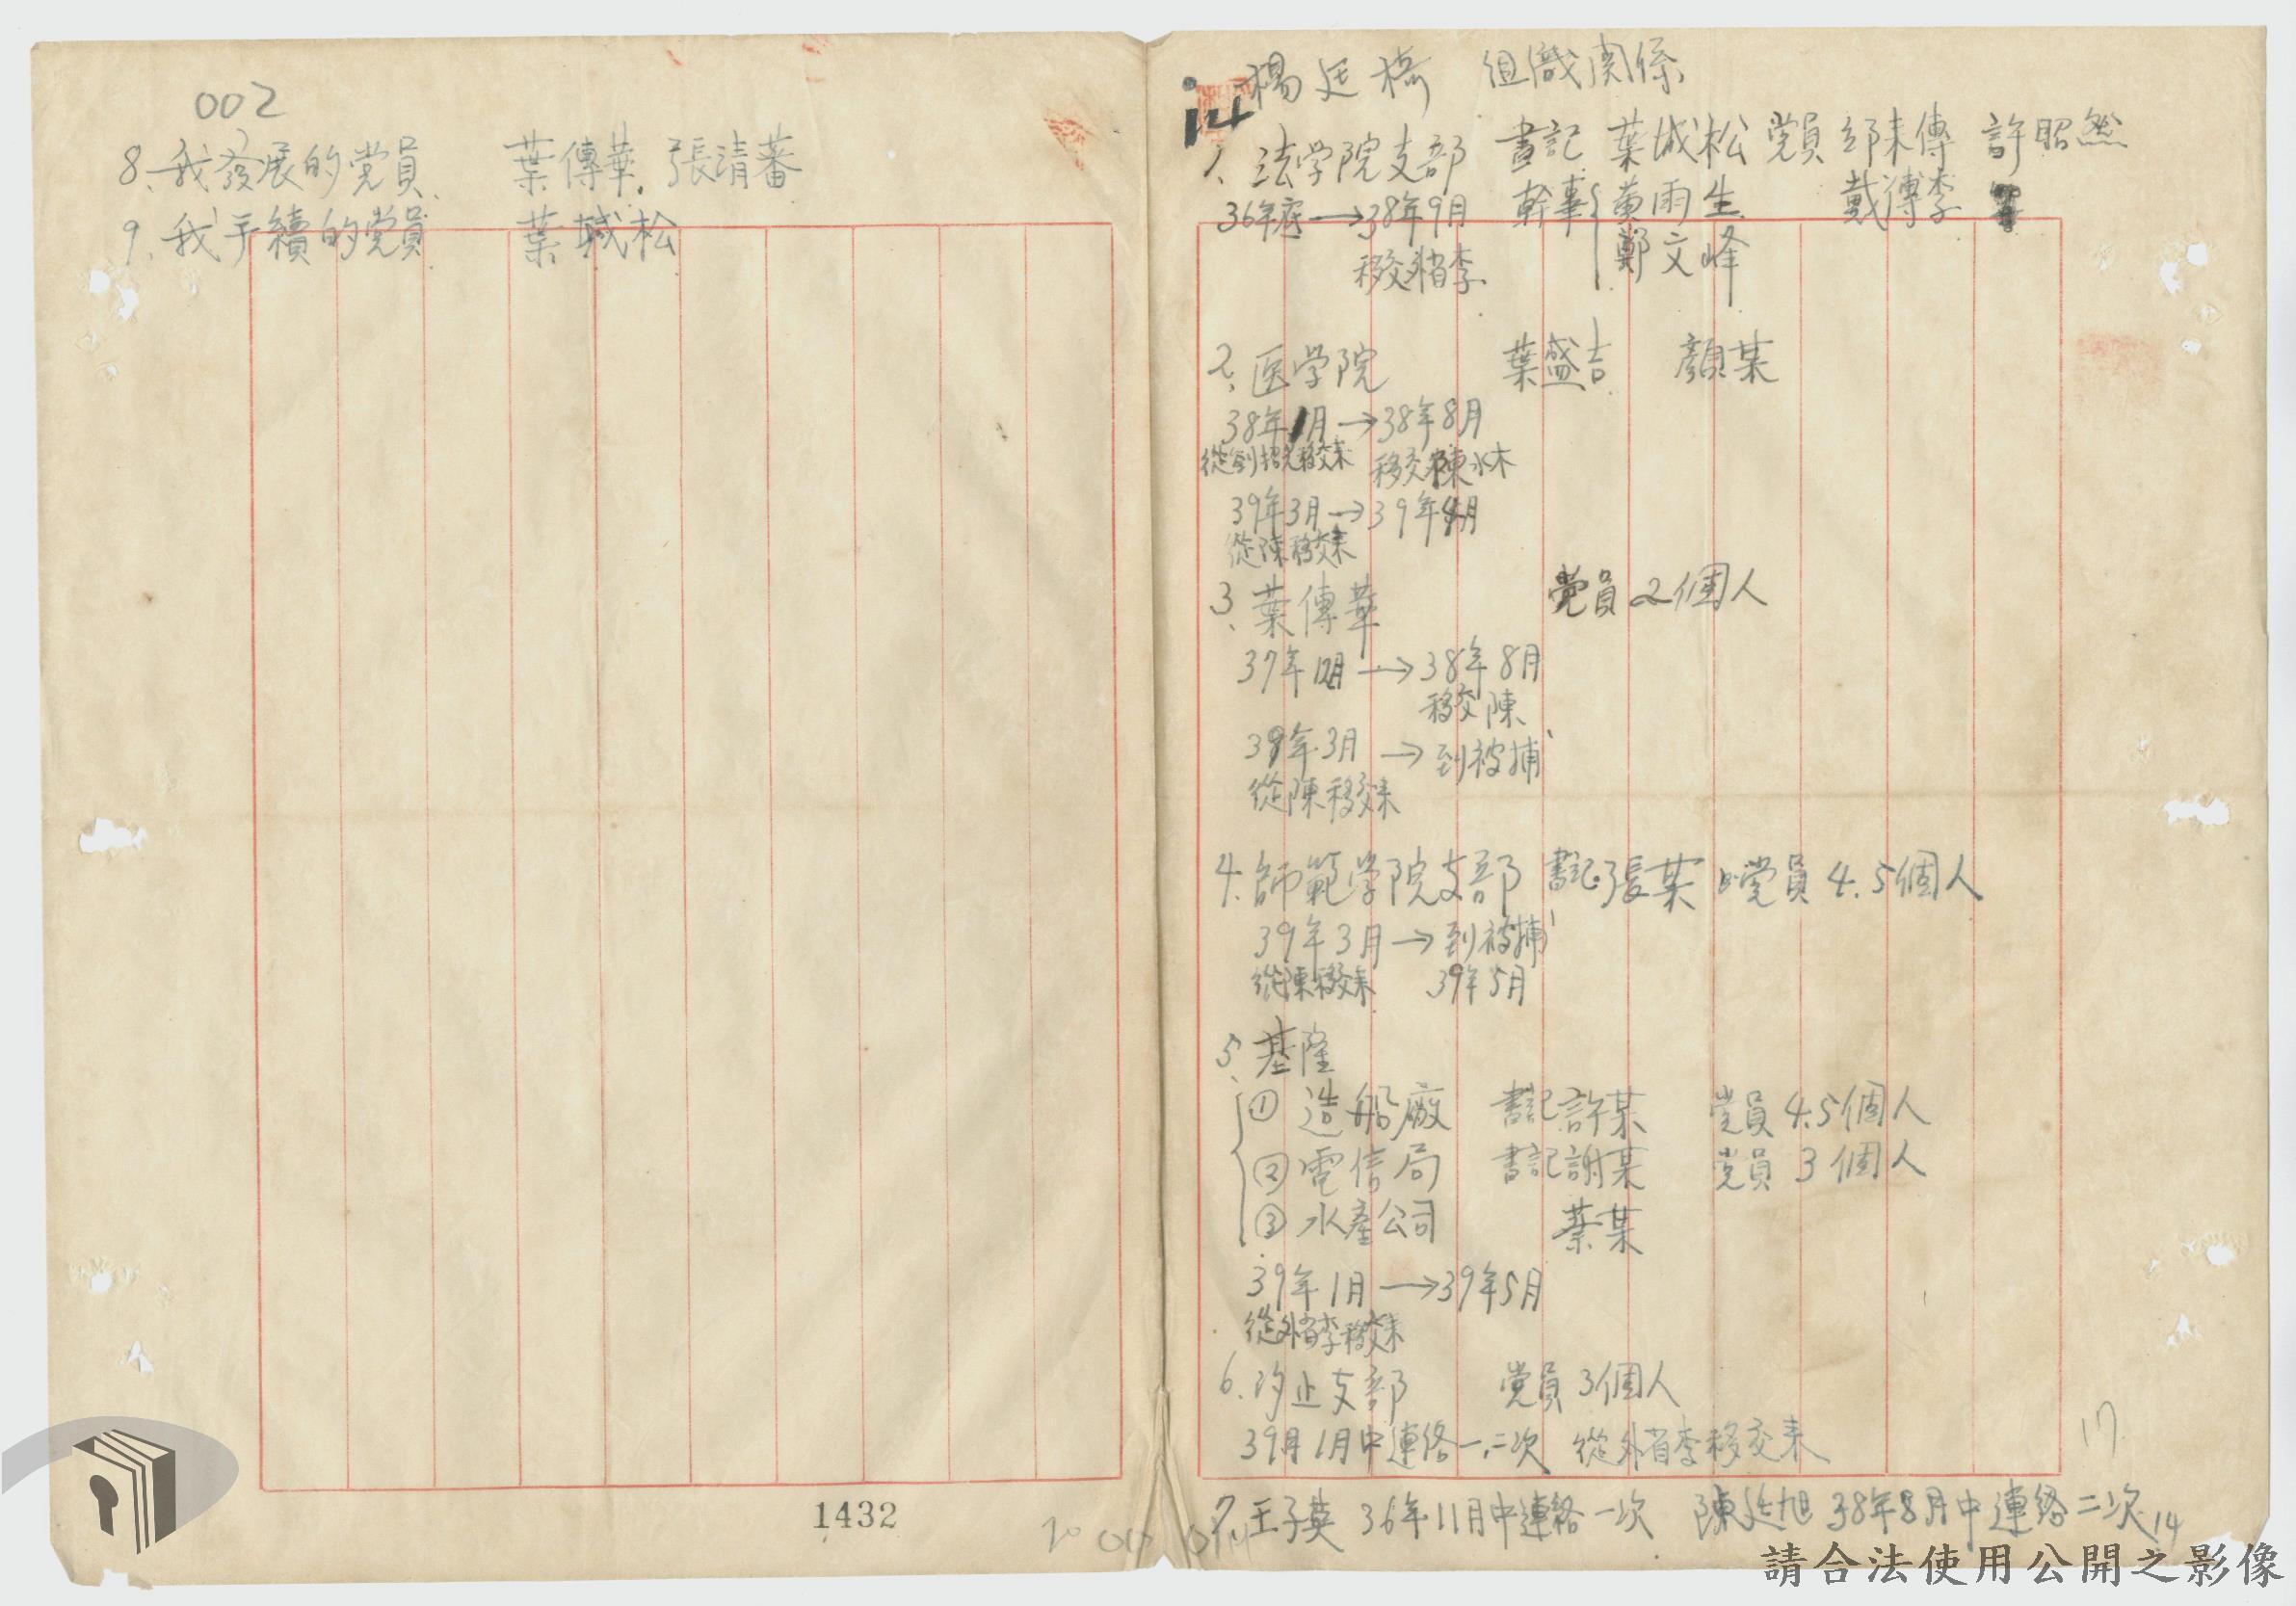 楊廷椅 組織関係
1、法学院支部 書記 葉城松 党員 邱来傳 許昭然
36年底→38年9月 幹事 黄雨生 戴傳李
移交外省李 鄭文峰
2、医学院 葉盛吉 顏某
38年1月→38年8月
從劉招光移交来 移交陳水木
39年3月→39年4月
從陳移交来
3、葉傳華 党員2個人
37年12月→38年8月
移交陳
39年3月→到被捕
從陳移交来
4.師範学院支部 書記張某 党員4.5個人
39年3月→到被捕
從陳移交来 39年5月
5、基隆
① 造船廠 書記許某 党員4.5個人
② 電信局 書記謝某 党員3個人
③ 水產公司 葉某
39年1月→39年5月
從外省李移交来
6.汐止支部 党員3個人
39月1月中連絡一,二次 從外省李移交来
7.王子英 36年11月中連絡一次 陳廷旭 38年8月中連絡二次
14
17
002
8、我發展的党員、 葉傳華、張清蕃
9、我手續的党員 葉城松
1432
請合法使用公開之影像